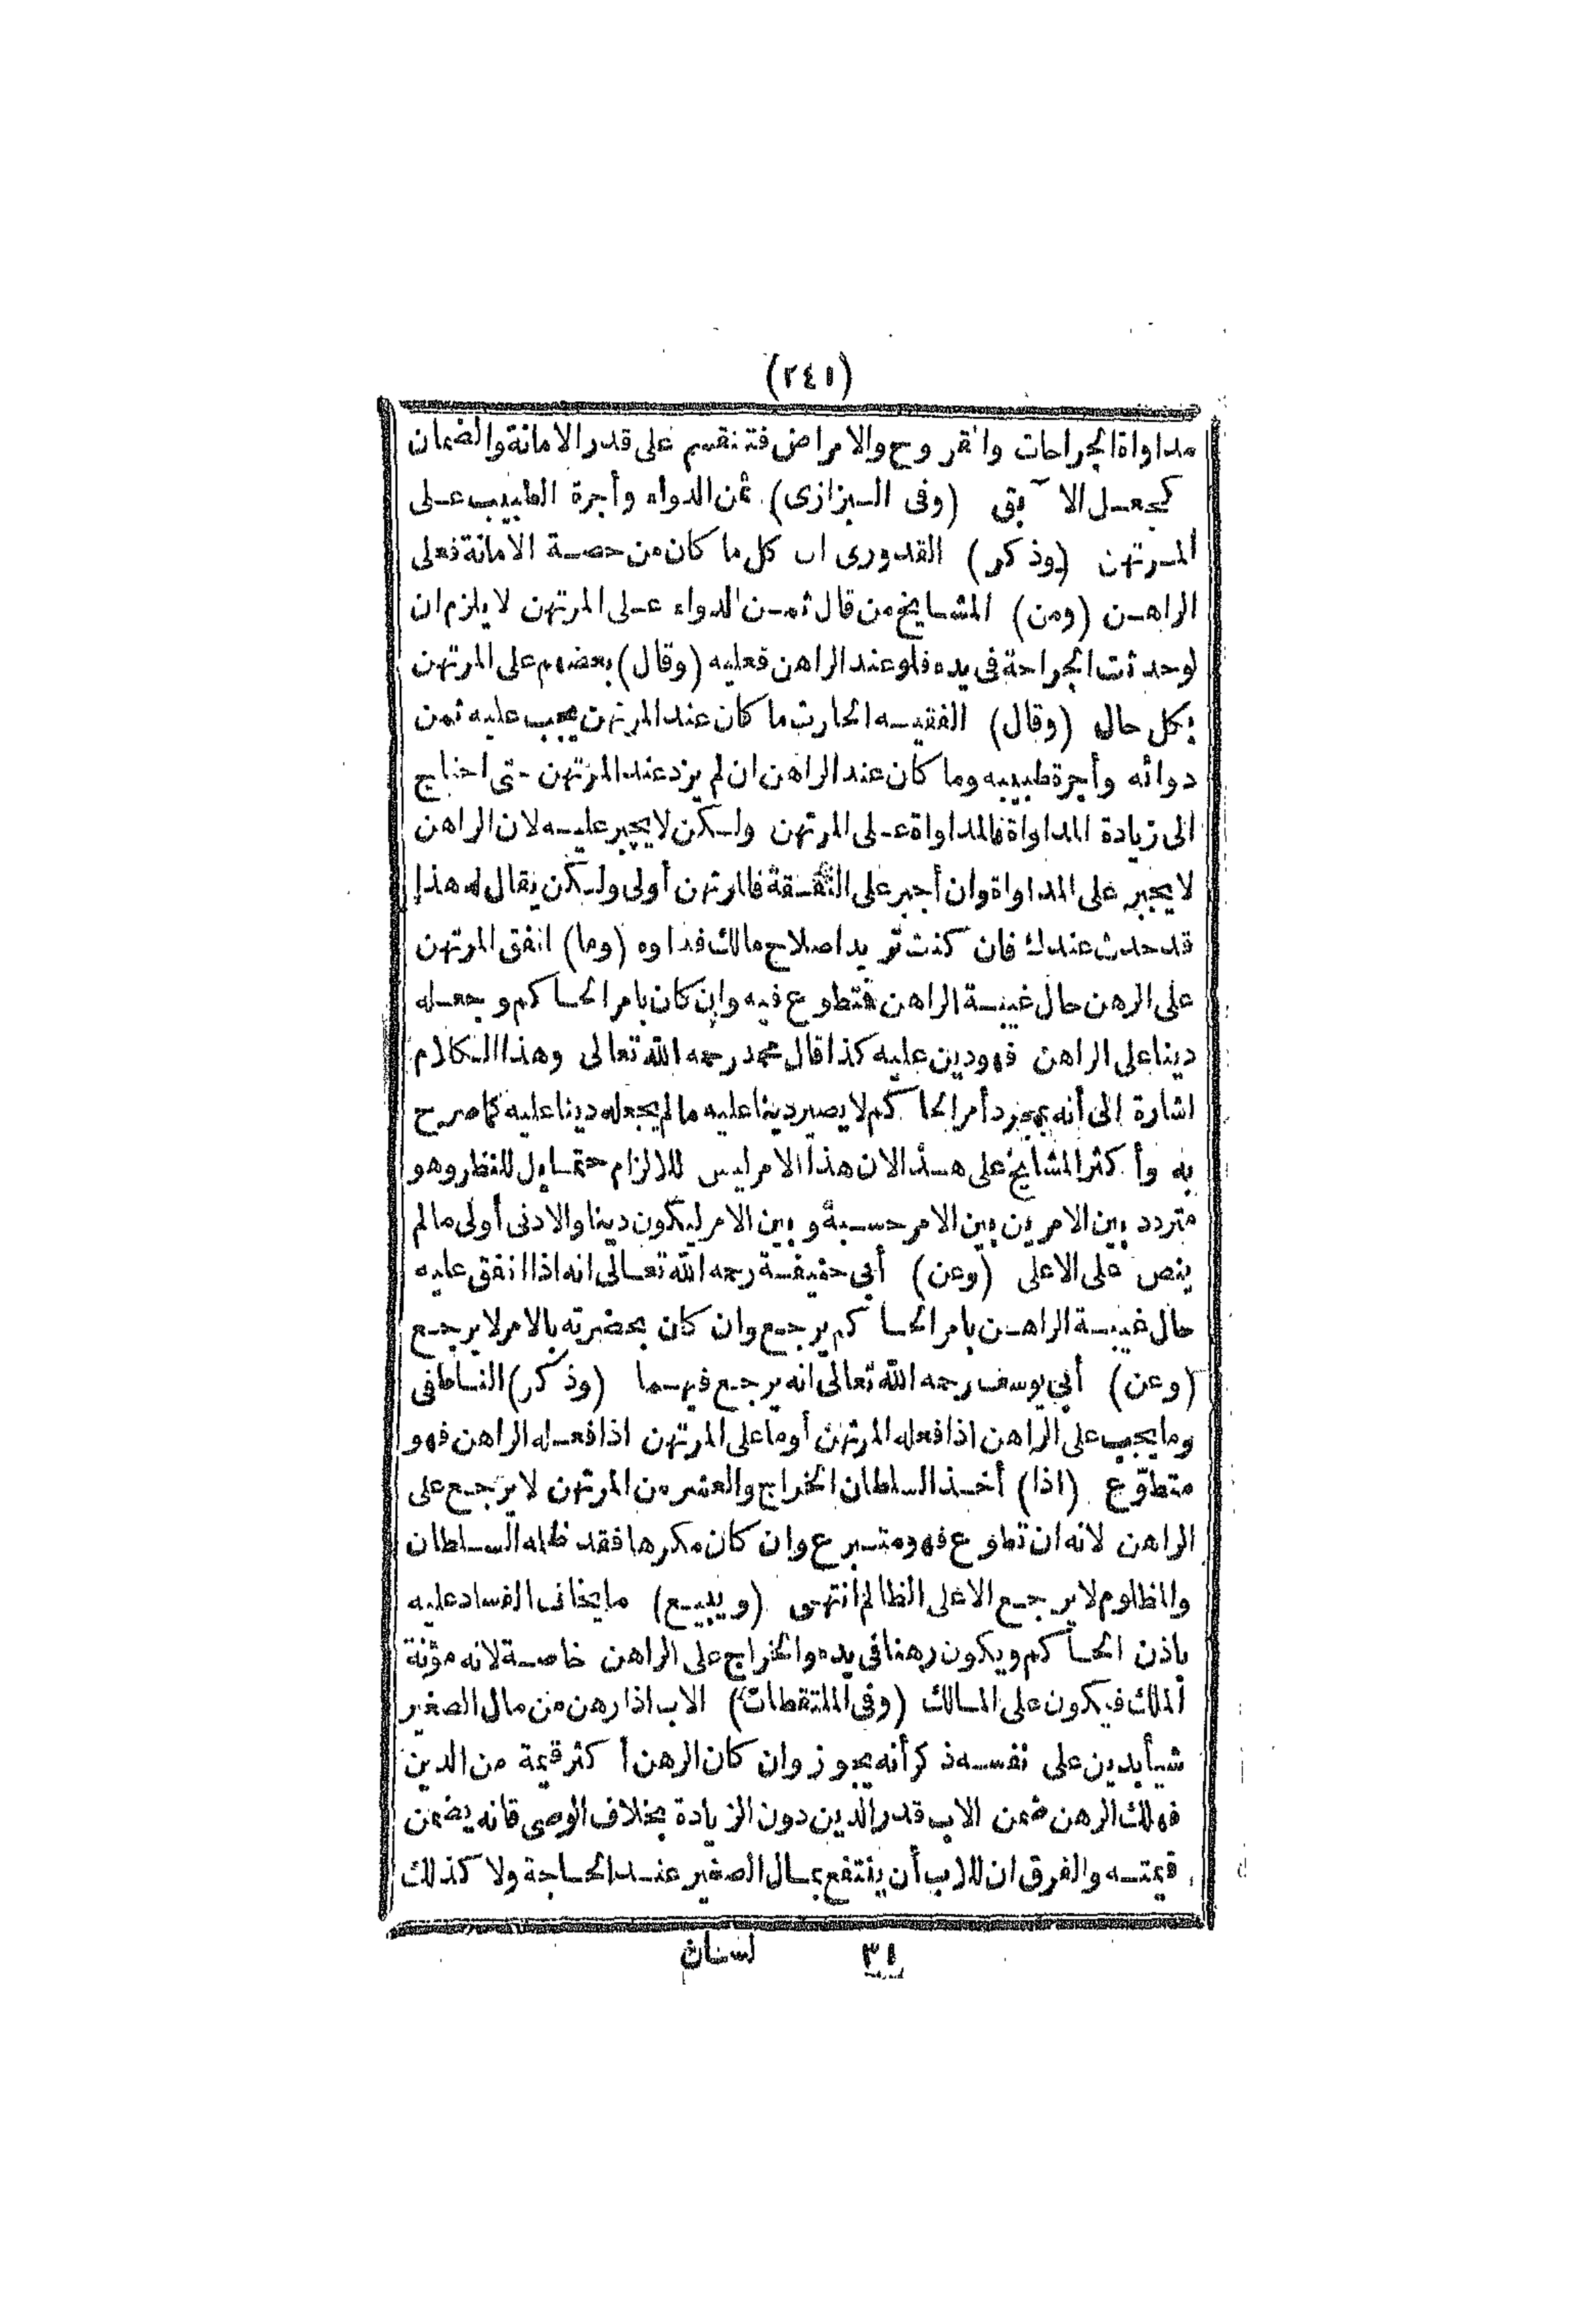 (٢٤١)
مداواة الجراحات والقروح والامراض فتنقسم على قدر الامانة والضمان
كجعل الآبق (وفى البزازى) ثمن الدواء وأجرة الطبيب على
المرتهن (وذكر) القدورى ان كل ما كان من حصة الامانة فعلى
الراهن (ومن) المشايخ من قال ثمن الدواء على المرتهن لا يلزم ان
لو حدثت الجراحة فى يده فلو عند الراهن فعليه (وقال) بعضهم على المرتهن
بكل حال (وقال) الفقيه الحارث ما كان عند المرتهن يجب عليه ثمن
دوائه وأجرة طبيبه وما كان عند الراهن ان لم يزد عند المرتهن حتى احتاج
الى زيادة المداواة فالمداواة على المرتهن ولكن لا يجبر عليه لان الراهن
لا يجبر على المداواة وان أجبر على النفقة فالمرتهن أولى ولكن يقال له هذا
قد حدث عندك فان كنت تريد اصلاح مالك فداوه (وما) انفق المرتهن
على الرهن حال غيبة الراهن فتطوع فيه وان كان بامر الحاكم وجعله
دينا على الراهن فهو دين عليه كذا قال محمد رحمه الله تعالى وهذا الكلام
اشارة الى أنه بمجرد أمر الحاكم لا يصير دينا عليه ما لم يجعله دينا عليه كما صرح
به وأكثر المشايخ على هذا لان هذا الامر ليس للالزام حتما بل للنظر وهو
متردد بين الامرين بين الامر حسبة وبين الامر ليكون دينا والادنى أولى ما لم
ينص على الاعلى (وعن) أبى حنيفة رحمه الله تعالى انه اذا انفق عليه
حال غيبة الراهن بامر الحاكم يرجع وان كان بحضرته بالامر لا يرجع
(وعن) أبى يوسف رحمه الله تعالى انه يرجع فيهما (وذكر) الناطفى
وما يجب على الراهن اذا فعله المرتهن أو ما على المرتهن اذا فعله الراهن فهو
متطوّع (اذا) أخذ السلطان الخراج والعشر من المرتهن لا يرجع على
الراهن لانه ان تطوع فهو متبرع وان كان مكرها فقد ظلمه السلطان
والمظلوم لا يرجع الا على الظالم انتهى (ويبيع) ما يخاف الفساد عليه
باذن الحاكم ويكون رهنا فى يده والخراج على الراهن خاصة لانه مؤنة
الملك فيكون على المالك (وفى الملتقطات) الاب اذا رهن من مال الصغير
شيأ بدين على نفسه ذكر أنه يجوز وان كان الرهن أكثر قيمة من الدين
فهلك الرهن ضمن الاب قدر الدين دون الزيادة بخلاف الوصى فانه يضمن
قيمته والفرق ان للاب أن ينتفع بمال الصغير عند الحاجة ولا كذلك
٣١ لسان